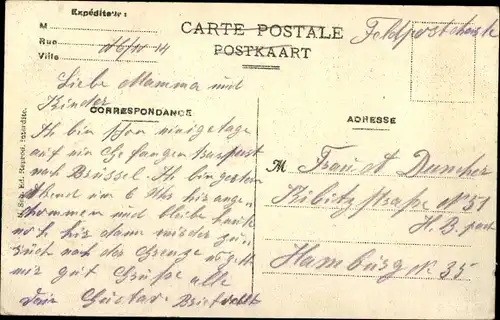 Expéditeur :
CARTE POSTALE
POSTKAART
Feldpostkarte
M
Rue
Ville
16/11 14
Liebe Mamma und
Kinder
CORRESPONDANCE
Ich bin schon einige tage
auf ein Gefangen transport
nach Brüssel. Ich bin gestern
Abend um 6 Uhr hir ange
kommen und bleibe heute
noch hir dann wieder zu
rück nach der Grenze es geht
mir gut Grüße alle
Dein Gustav
ADRESSE
M Frau A Duncker
Kibitzstraße No 51
H.B. part
Hamburg No 35
Ed. Reprod. interdite.